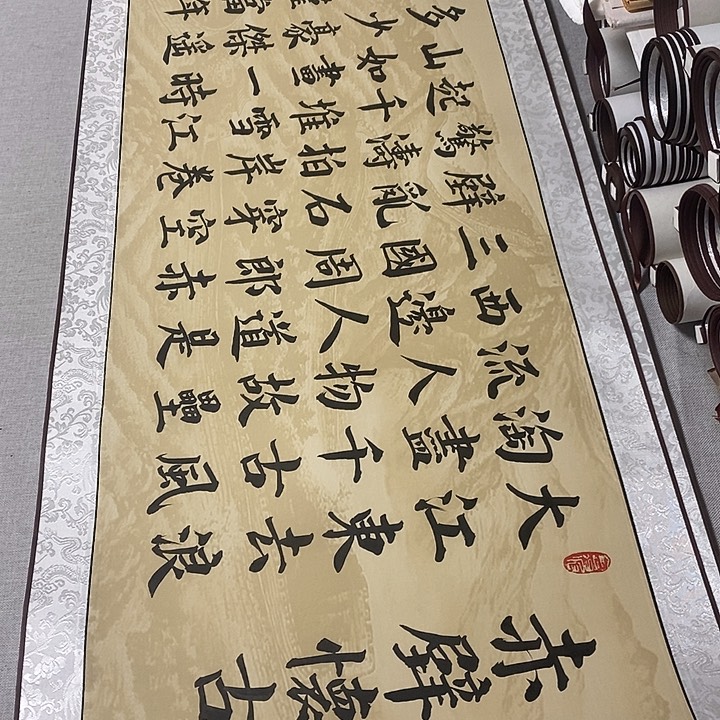 赤壁懷古
大江東去浪
淘盡千古風
流人物故壘
西邊人道是
三國周郎赤
壁亂石穿空
驚濤拍岸卷
起千堆雪江
山如畫一時
多少豪傑遙
當年